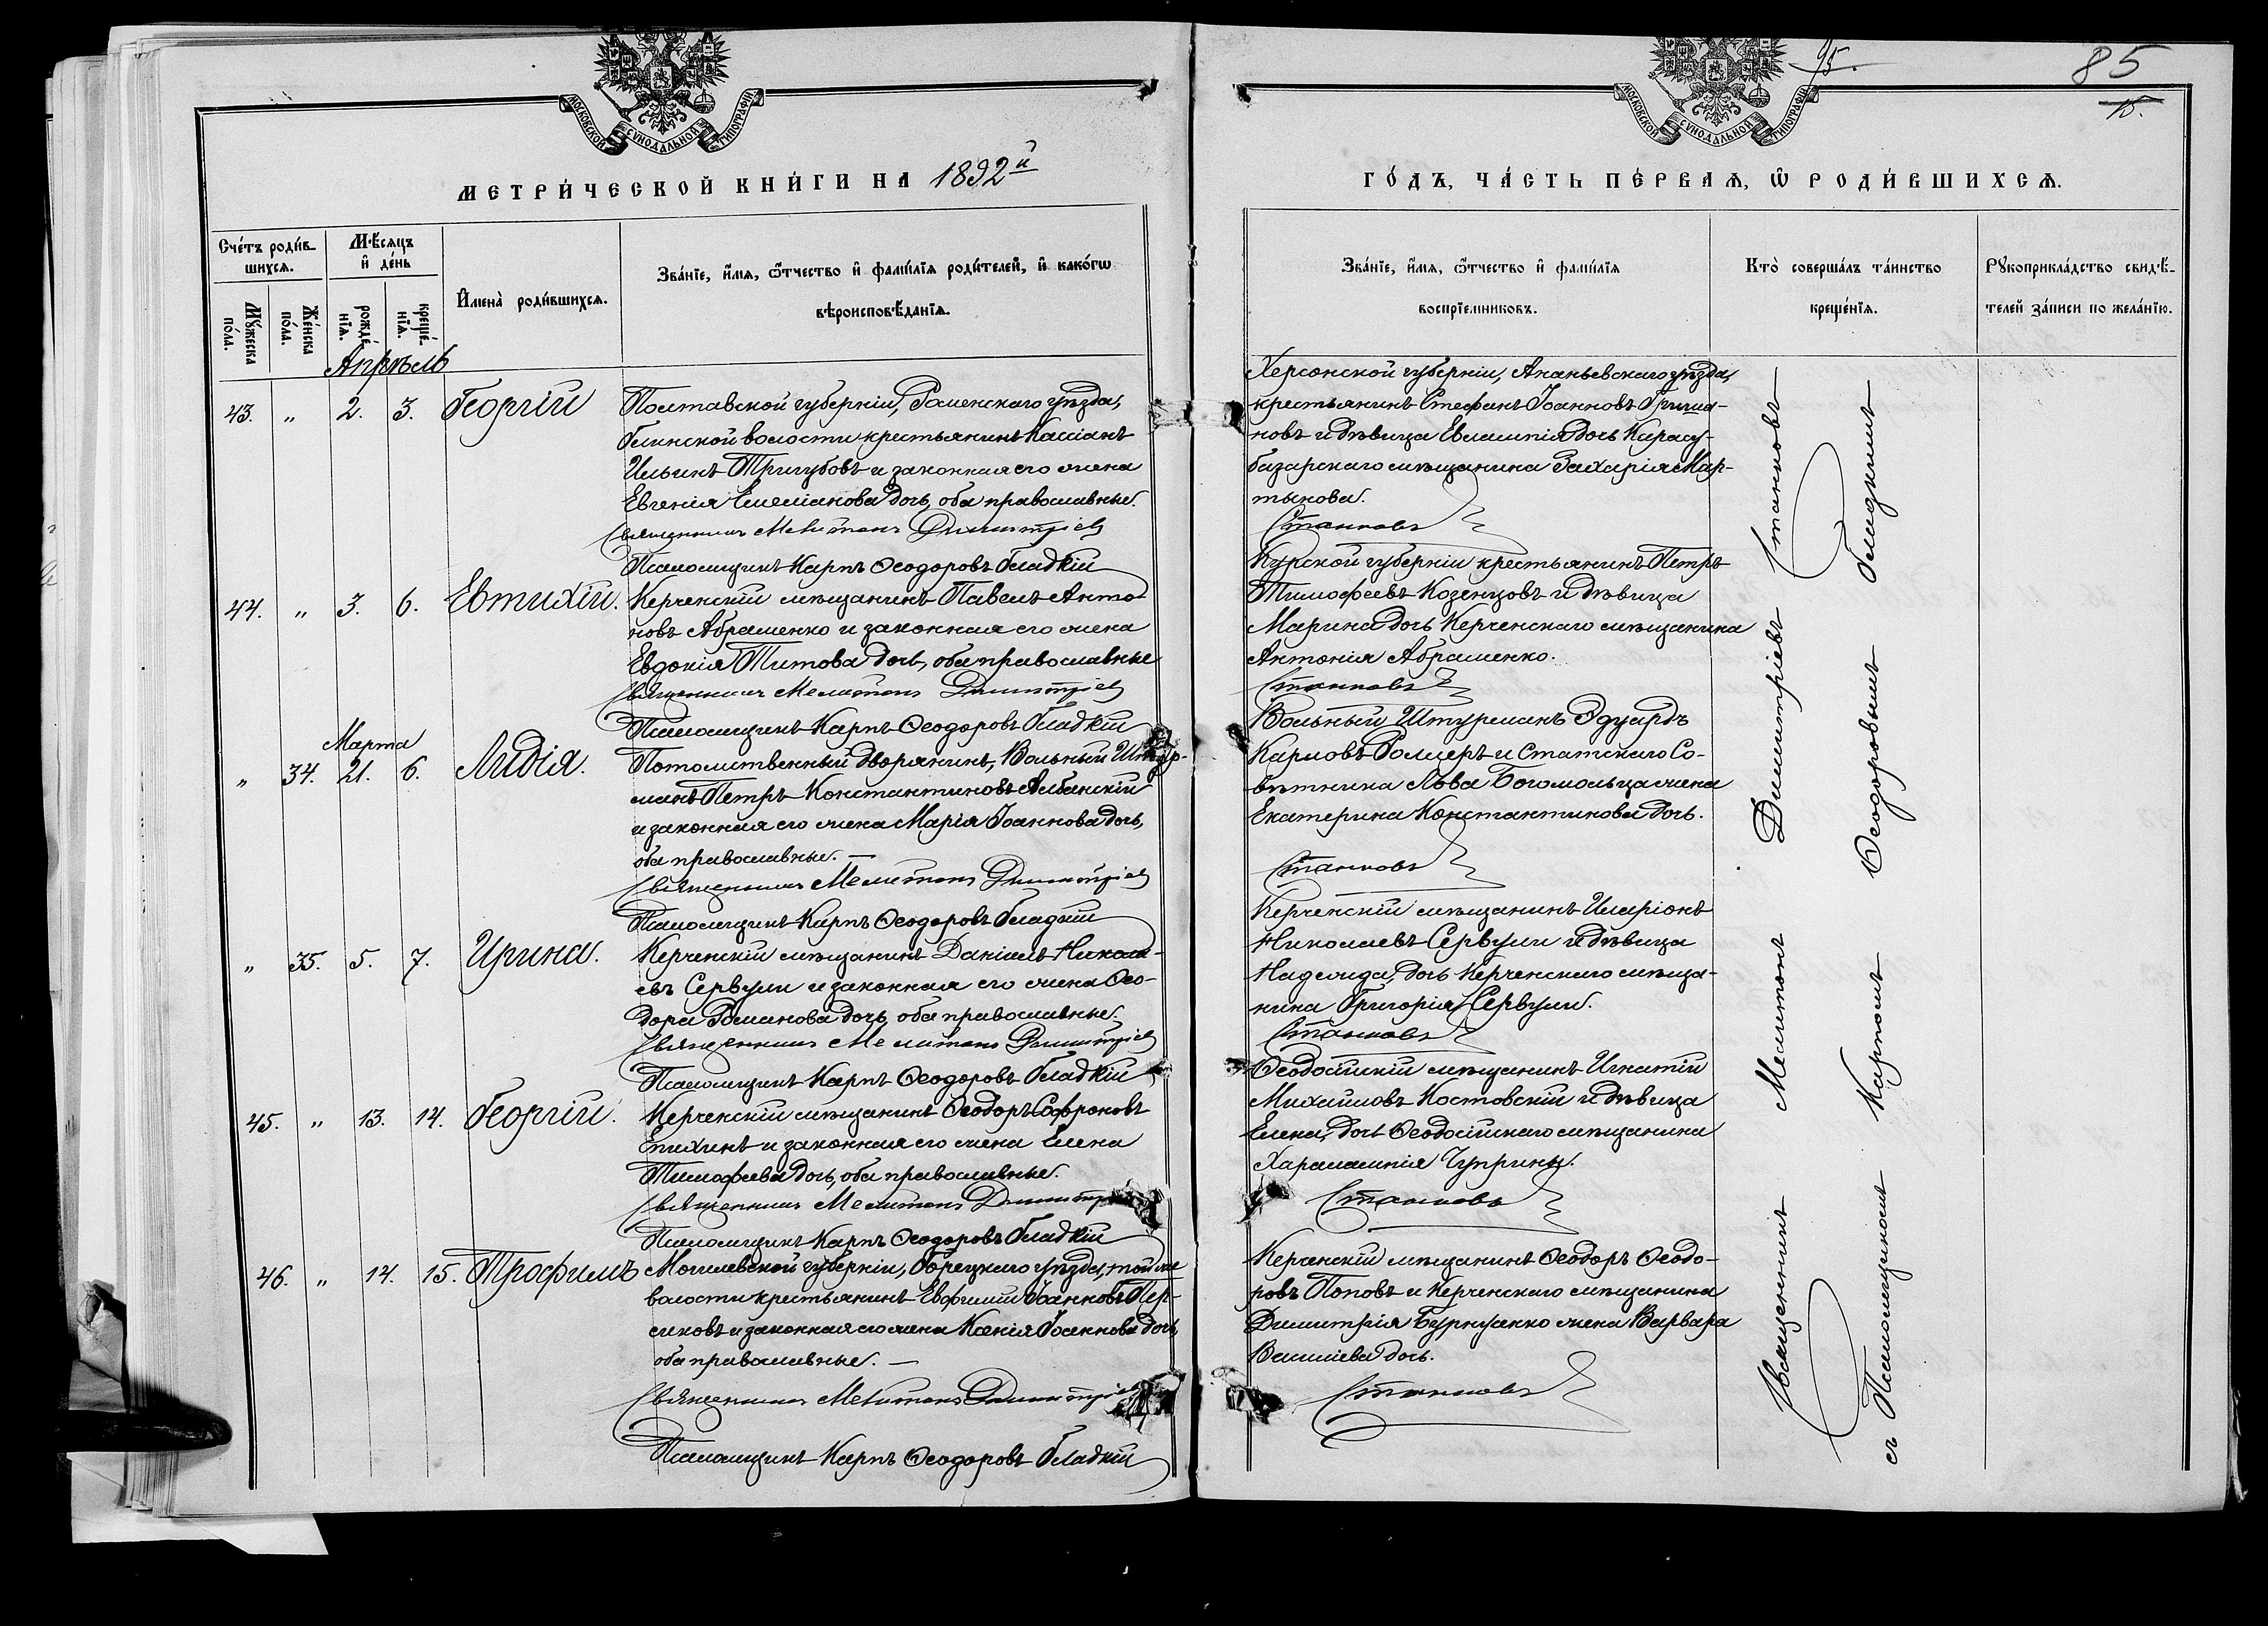 МОСКОВСКОЙ СѴНОДАЛЬНОЙ ТИПОГРАФІИ
МЕТРИ́ЧЕСКОЙ КНИ́ГИ НА 1892й
Сче́тъ роди́в-
шихсѧ.
Мꙋ́жеска
по́ла.
Же́нска
по́ла.
Мѣ́сѧцъ
и҆ де́нь
рожде́-
нїѧ.
креще́-
нїѧ.
И҆мена̀ роди́вшихсѧ.
Зва́нїе, и҆́мѧ, ѻ҆́тчество и҆ фами́лїѧ роди́телей, и҆ како́гѡ
вѣроисповѣ́данїѧ.
Апрѣль
43. " 2. 3. Георгій
Полтавской губерніи, Роменскаго уѣзда,
Глинской волости крестьянинъ Кассіанъ
Ильинъ Тригубовъ и законная его жена
Евгенія Емеліанова дочь, оба православные.
Священникъ Мелитонъ Димитріевъ
Псаломщикъ Карпъ Ѳеодоровъ Гладкій
44. " 3. 6. Евтихій.
Керченскій мѣщанинъ Павелъ Анто-
новъ Абраменко и законная его жена
Евдокія Титова дочь, оба православные
Священникъ Мелитонъ Димитріевъ
Псаломщикъ Карпъ Ѳеодоровъ Гладкій
Марта
" 34. 21. 6. Лидія.
Потомственный дворянинъ, Вольный Штур-
манъ Петръ Константиновъ Албанскій
и законная его жена Марія Іоаннова дочь,
оба православные. —
Священникъ Мелитонъ Димитріевъ
Псаломщикъ Карпъ Ѳеодоровъ Гладкій
" 35. 5. 7. Ирина.
Керченскій мѣщанинъ Даніилъ Никола-
евъ Сервули и законная его жена Ѳео-
дора Романова дочь, оба православные.
Священникъ Мелитонъ Димитріевъ
Псаломщикъ Карпъ Ѳеодоровъ Гладкій
45. " 13. 14. Георгій.
Керченскій мѣщанинъ Ѳеодоръ Софроновъ
Епихинъ и законная его жена Елена
Тимофеева дочь, оба православные.
Священникъ Мелитонъ Димитріевъ
Псаломщикъ Карпъ Ѳеодоровъ Гладкій
46. " 14. 15. Трофимъ
Могилевской губерніи, Горецкаго уѣзда, той же
волости крестьянинъ Евфимій Іоанновъ Пер-
сиковъ и законная его жена Ксенія Іоаннова дочь
оба православные. —
Священникъ Мелитонъ Димитріевъ
Псаломщикъ Карпъ Ѳеодоровъ Гладкій
95.
85
МОСКОВСКОЙ СѴНОДАЛЬНОЙ ТИПОГРАФІИ
ГО́ДЪ, ЧА́СТЬ ПЕ́РВАѦ, Ѡ҆ РОДИ́ВШИХСѦ.
Зва́нїе, и҆́мѧ, ѻ҆́тчество и҆ фами́лїѧ
воспрїемниковъ.
Кто̀ соверша́лъ та́инство
креще́нїѧ.
Рꙋкоприкла́дство свидѣ́-
телей за́писи по жела́нїю.
Херсонской губерніи, Ананьевскаго уѣзда,
крестьянинъ Стефанъ Іоанновъ Гриша-
новъ и дѣвица Евлампія дочь Карасу-
базарскаго мѣщанина Захарія Мар-
тынова.
Станковъ
Курской губерніи крестьянинъ Петръ
Тимофеевъ Козенцовъ и дѣвица
Марина дочь Керченскаго мѣщанина
Антонія Абраменко.
Станковъ
Вольный Штурманъ Эдуардъ
Карловъ Ролцеръ и Статскаго Со-
вѣтника Льва Богомольца жена
Екатерина Константинова дочь.
Станковъ
Керченскій мѣщанинъ Иларіонъ
Николаевъ Сервули и дѣвица
Надежда, дочь Керченскаго мѣща-
нина Григорія Сервули.
Станковъ
Ѳеодосійскій мѣщанинъ Игнатій
Михайловъ Костовскій и дѣвица
Елена, дочь Ѳеодосійскаго мѣщанина
Харалампія Чуприны.
Станковъ
Керченскій мѣщанинъ Ѳеодоръ Ѳеодо-
ровъ Поповъ и Керченскаго мѣщанина
Димитрія Бурнусенко жена Варвара
Василіева дочь.
Станковъ
Священникъ Мелитонъ Димитріевъ Станковъ
съ Псаломщикомъ Карпомъ Ѳеодоровымъ Гладкимъ